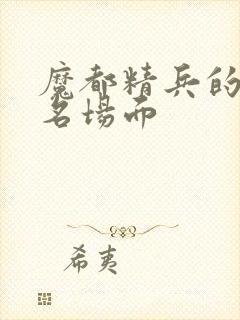 魔都精兵的
名場面
希夷